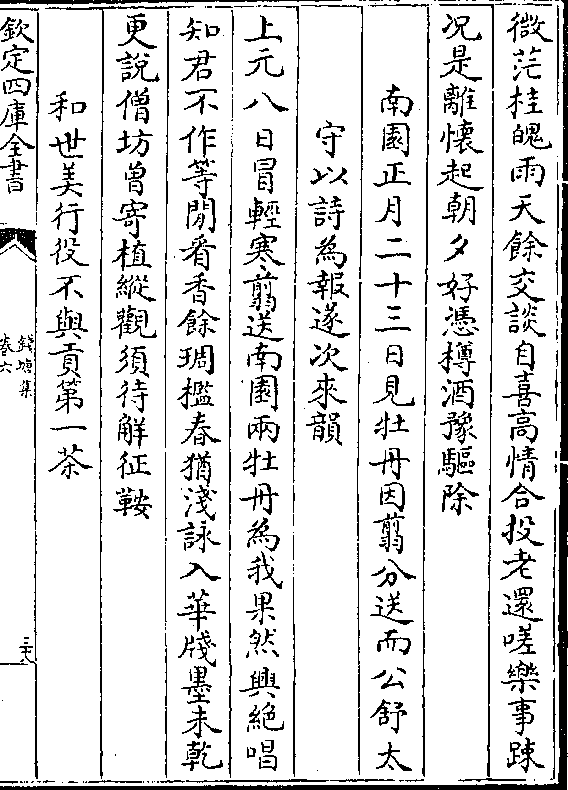 微茫桂魄雨天餘交談自喜高情合投老還嗟樂事踈
况是離懷起朝夕好憑樽酒豫驅除
南園正月二十三日見牡丹因翦分送而公舒太
守以詩為報遂次來韻
上元八日冒輕寒翦送南園兩牡丹為我果然興絶唱
知君不作等閒看香餘琱檻春猶淺詠入華牋墨未乾
更說僧坊曾寄植縱觀須待解征鞍
和世美行役不與貢第一茶
欽定四庫全書
錢塘集
卷六
三十八